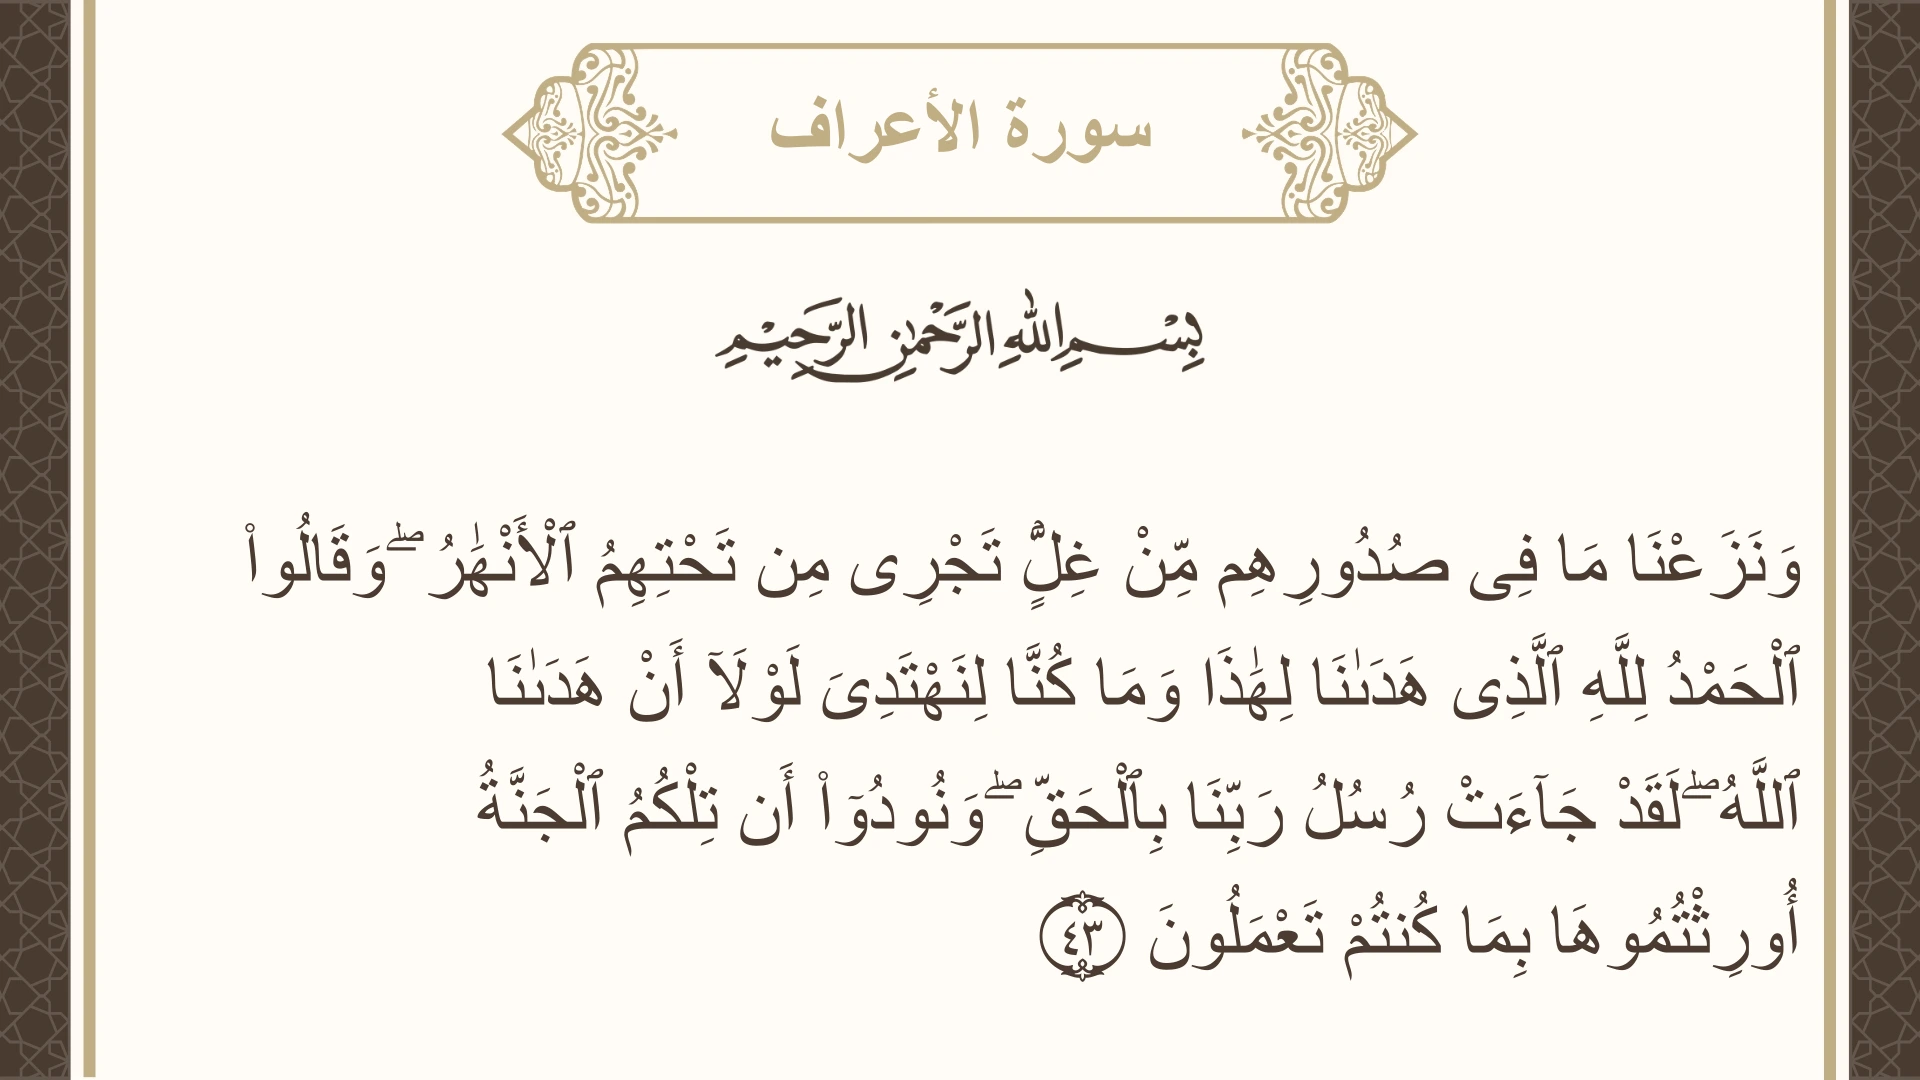 سورة الأعراف
بِسْمِ اللهِ الرَّحْمٰنِ الرَّحِيْمِ
وَنَزَعْنَا مَا فِى صُدُورِهِم مِّنْ غِلٍّۢ تَجْرِى مِن تَحْتِهِمُ ٱلْأَنْهَـٰرُ ۖ وَقَالُوا۟
ٱلْحَمْدُ لِلَّهِ ٱلَّذِى هَدَىٰنَا لِهَـٰذَا وَمَا كُنَّا لِنَهْتَدِىَ لَوْلَآ أَنْ هَدَىٰنَا
ٱللَّهُ ۖ لَقَدْ جَآءَتْ رُسُلُ رَبِّنَا بِٱلْحَقِّ ۖ وَنُودُوٓا۟ أَن تِلْكُمُ ٱلْجَنَّةُ
أُورِثْتُمُوهَا بِمَا كُنتُمْ تَعْمَلُونَ ٤٣